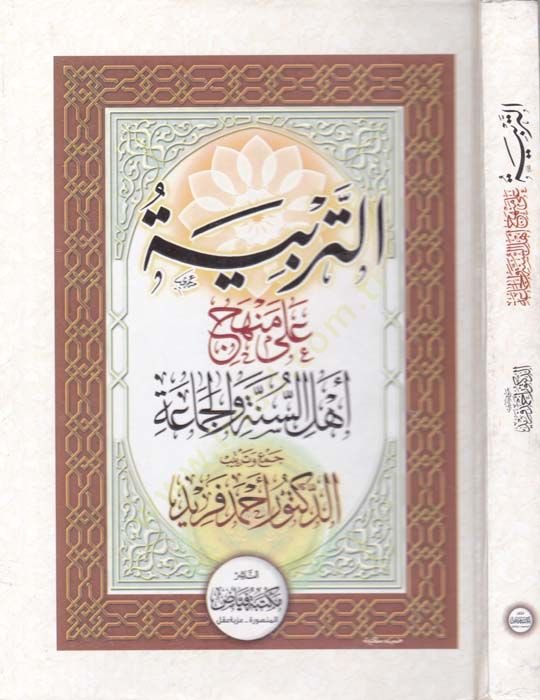 التَّرْبِيَةُ
عَلَى مَنْهَجِ
أَهْلِ السُّنَّةِ وَالْجَمَاعَةِ
جمع وترتيب
الدكتور أحمد فريد
الناشر
مكتبة فياض
المنصورة - عزبة عقل
التربية
على منهج أهل السنة والجماعة
الدكتور أحمد فريد